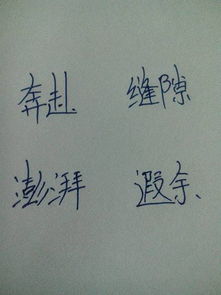 奔赴 缝隙
澎湃 遐余